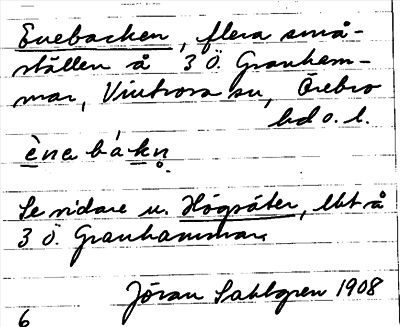 Enebacken, flera små-
ställen å 3 Ö. Granham-
mar, Vintrosa sn, Örebro
hd o. l.
ènebákn̥
Se vidare u. Högsäter, lht å
3 Ö. Granhammar
Jöran Sahlgren 1908
6